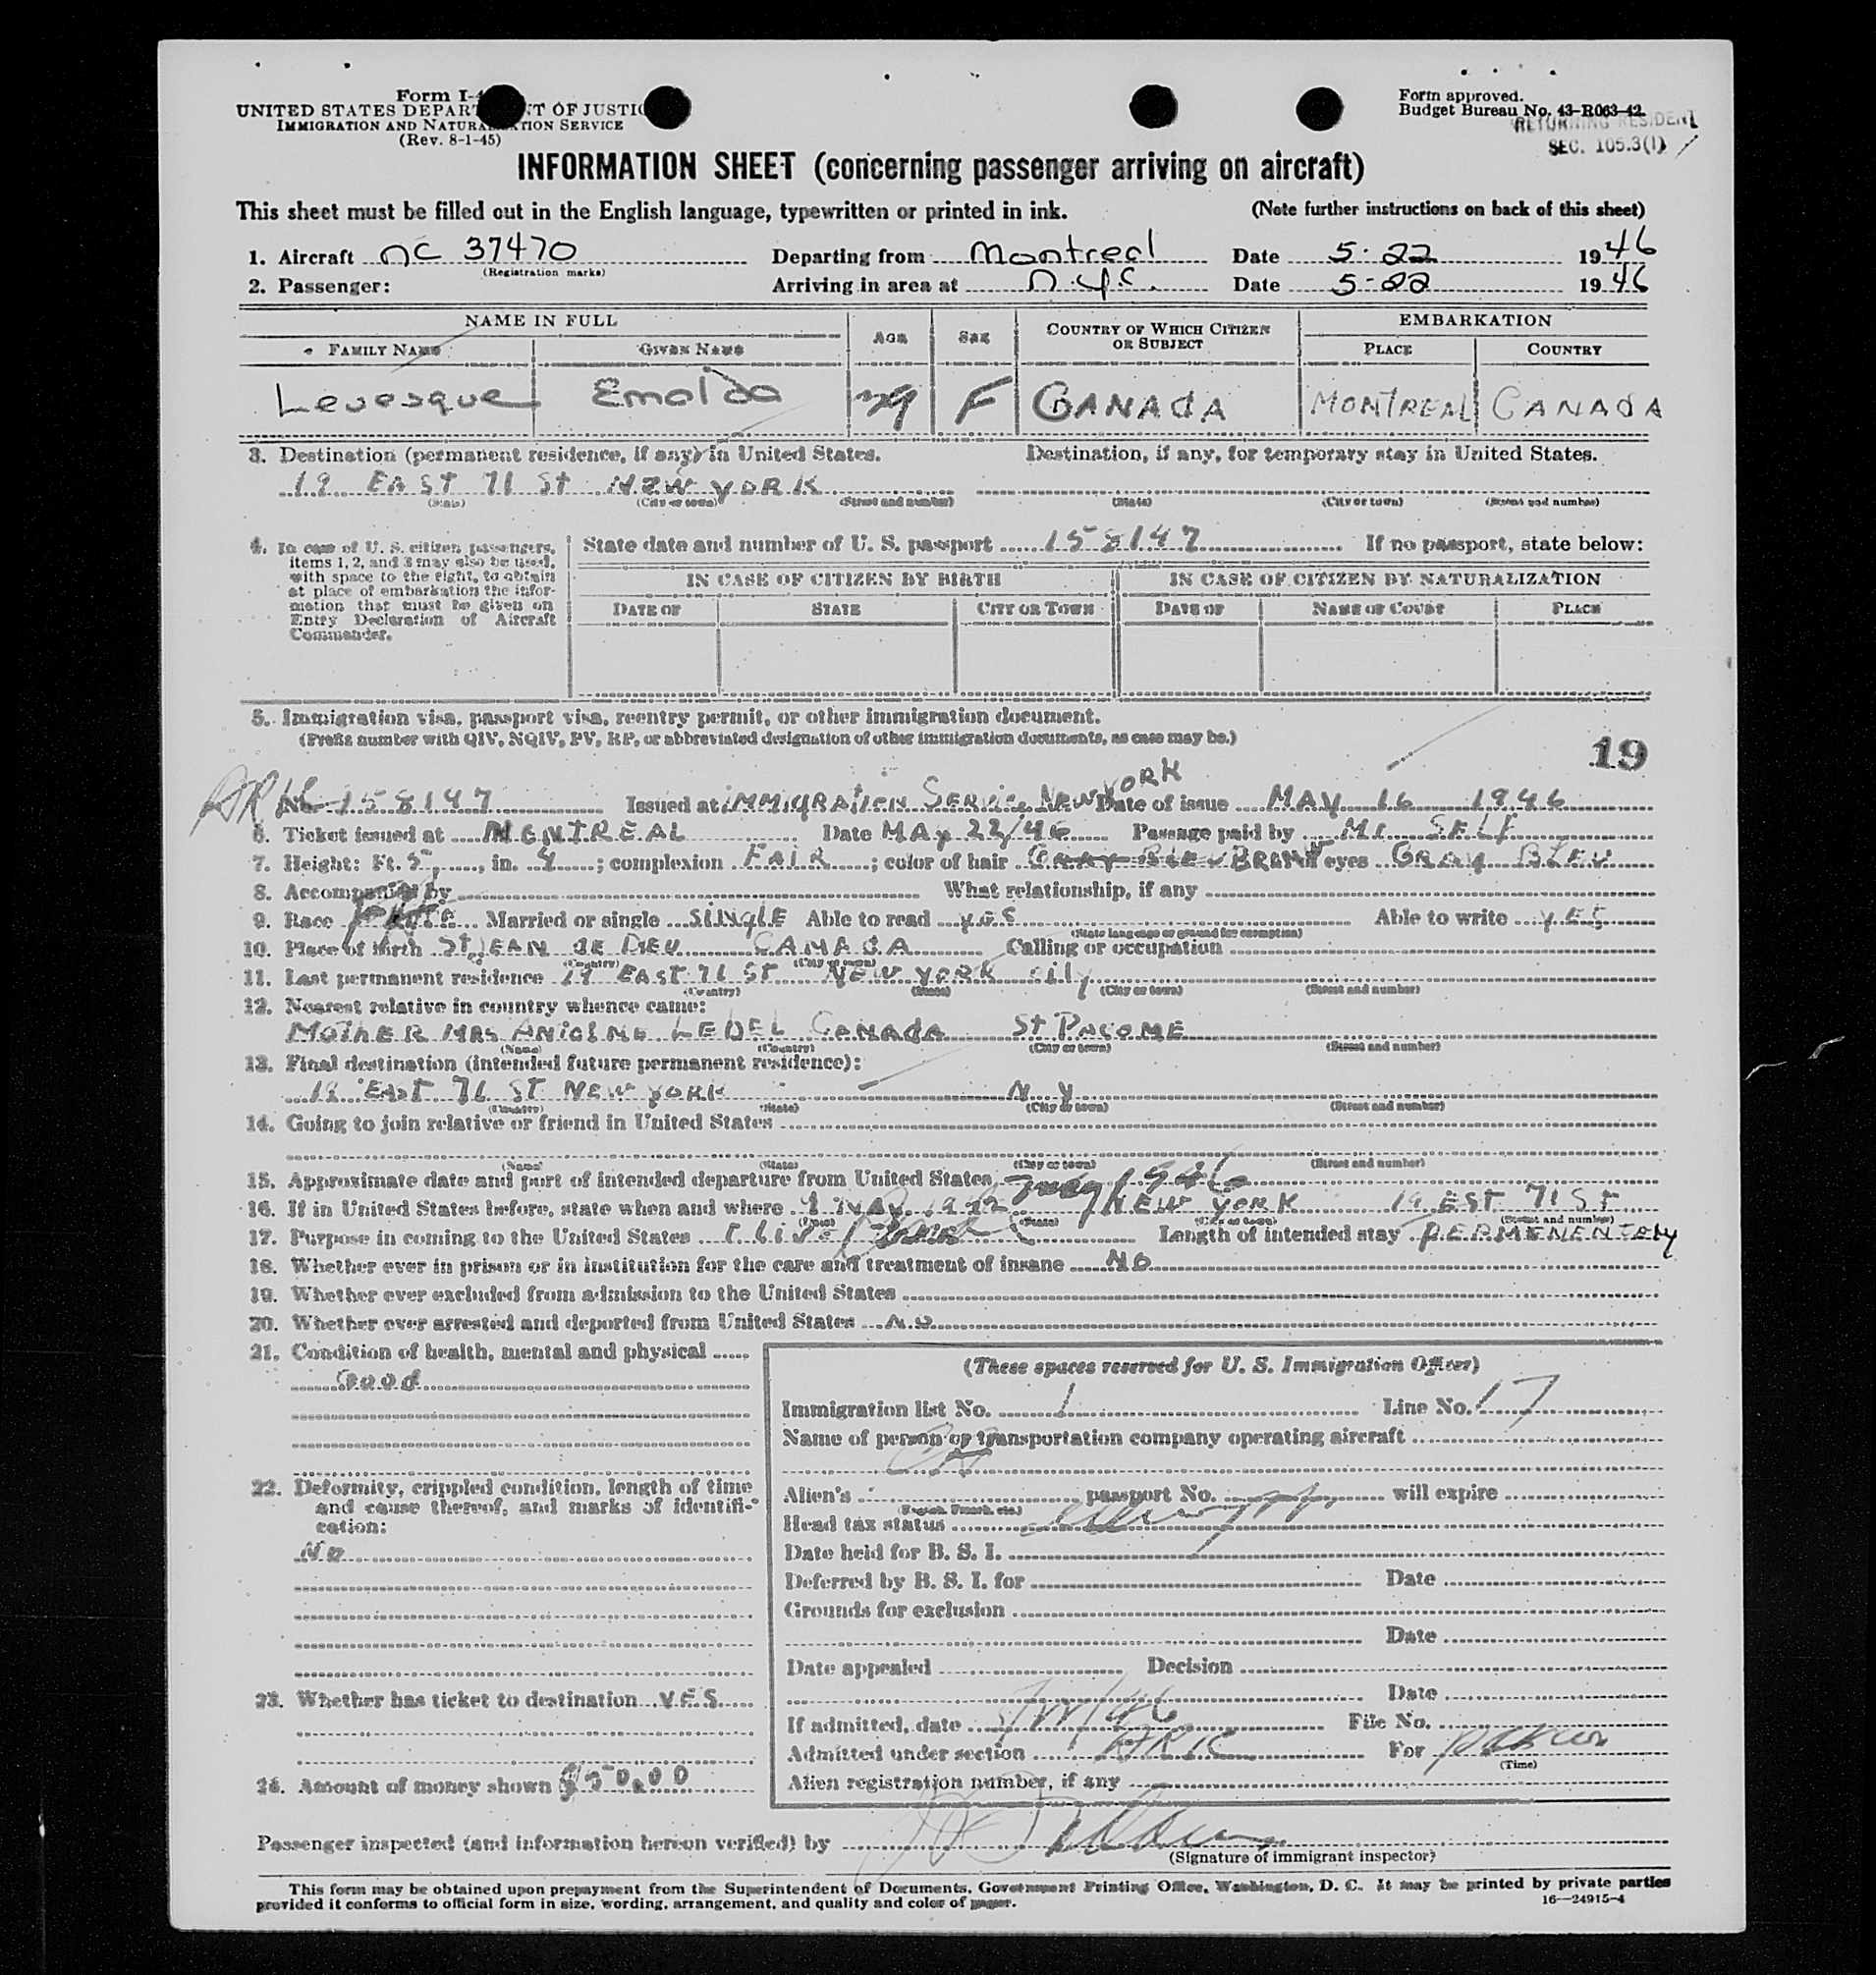 Form I-4
UNITED STATES DEPART NT OF JUSTIC
IMMIGRATION AND NATURALIZATION SERVICE
(Rev. 8-1-45)
Form approved.
Budget Bureau No. 43-R063-42.
RETURNING RESIDENT
SEC. 105.3(1)
INFORMATION SHEET (concerning passenger arriving on aircraft)
This sheet must be filled out in the English language, typewritten or printed in ink. (Note further instructions on back of this sheet)
1. Aircraft NC 37470 Departing from Montreal Date 5-22 1946
(Registration marks)
2. Passenger: Arriving in area at N.Y.C. Date 5-22 1946
NAME IN FULL AGE SEX COUNTRY OF WHICH CITIZEN OR SUBJECT EMBARKATION
FAMILY NAME GIVEN NAME PLACE COUNTRY
Levesque Emolda 29 F CANADA MONTREAL CANADA
3. Destination (permanent residence, if any) in United States. Destination, if any, for temporary stay in United States.
19 EAST 71 St NEW YORK
(State) (City or town) (Street and number) (State) (City or town) (Street and number)
4. In case of U. S. citizen passengers, items 1, 2, and 3 may also be used, with space to the right, to obtain at place of embarkation the information that must be given on Entry Declaration of Aircraft Commander.
State date and number of U. S. passport 158147 If no passport, state below:
IN CASE OF CITIZEN BY BIRTH IN CASE OF CITIZEN BY NATURALIZATION
DATE OF STATE CITY OR TOWN DATE OF NAME OF COURT PLACE
5. Immigration visa, passport visa, reentry permit, or other immigration document.
(Prefix number with QIV, NQIV, PV, RP, or abbreviated designation of other immigration documents, as case may be.)
19
No. 158147 Issued at IMMIGRATION Service NEW YORK Date of issue MAY 16 1946
6. Ticket issued at MONTREAL Date MAY 22/46 Passage paid by My SELF
7. Height: Ft. 5, in. 4; complexion FAIR; color of hair GRAY BLEU BROWN eyes GRAY BLEU
8. Accompanied by What relationship, if any
9. Race Married or single SINGLE Able to read yes Able to write YES
(State language or ground for exemption)
10. Place of birth St JEAN de DIEU CANADA Calling or occupation
(Country) (City or town)
11. Last permanent residence 19 EAST 71 ST NEW YORK city
(Country) (State) (City or town) (Street and number)
12. Nearest relative in country whence came:
MOTHER MRS LEBEL CANADA ST PACOME
(Name) (Country) (City or town) (Street and number)
13. Final destination (intended future permanent residence):
19 EAST 71 ST NEW YORK N Y
(Country) (State) (City or town) (Street and number)
14. Going to join relative or friend in United States
(Name) (State) (City or town) (Street and number)
15. Approximate date and port of intended departure from United States May 1946
16. If in United States before, state when and where 1942 NEW YORK 19 EST 71 ST
(State) (City or town) (Street and number)
17. Purpose in coming to the United States Length of intended stay PERMENENTLY
18. Whether ever in prison or in institution for the care and treatment of insane NO
19. Whether ever excluded from admission to the United States
20. Whether ever arrested and deported from United States NO
21. Condition of health, mental and physical
Good
22. Deformity, crippled condition, length of time and cause thereof, and marks of identification:
No
23. Whether has ticket to destination YES
24. Amount of money shown $50.00
(These spaces reserved for U. S. Immigration Officer)
Immigration list No. 1 Line No. 17
Name of person or transportation company operating aircraft
Alien's passport No. will expire
(French, etc.)
Head tax status
Date held for B. S. I.
Deferred by B. S. I. for Date
Grounds for exclusion
Date
Date appealed Decision
Date
If admitted, date 5/22/46 File No.
Admitted under section For
(Time)
Alien registration number, if any
Passenger inspected (and information hereon verified) by
(Signature of immigrant inspector)
This form may be obtained upon prepayment from the Superintendent of Documents, Government Printing Office, Washington, D. C. It may be printed by private parties
provided it conforms to official form in size, wording, arrangement, and quality and color of paper.
16—24915-4